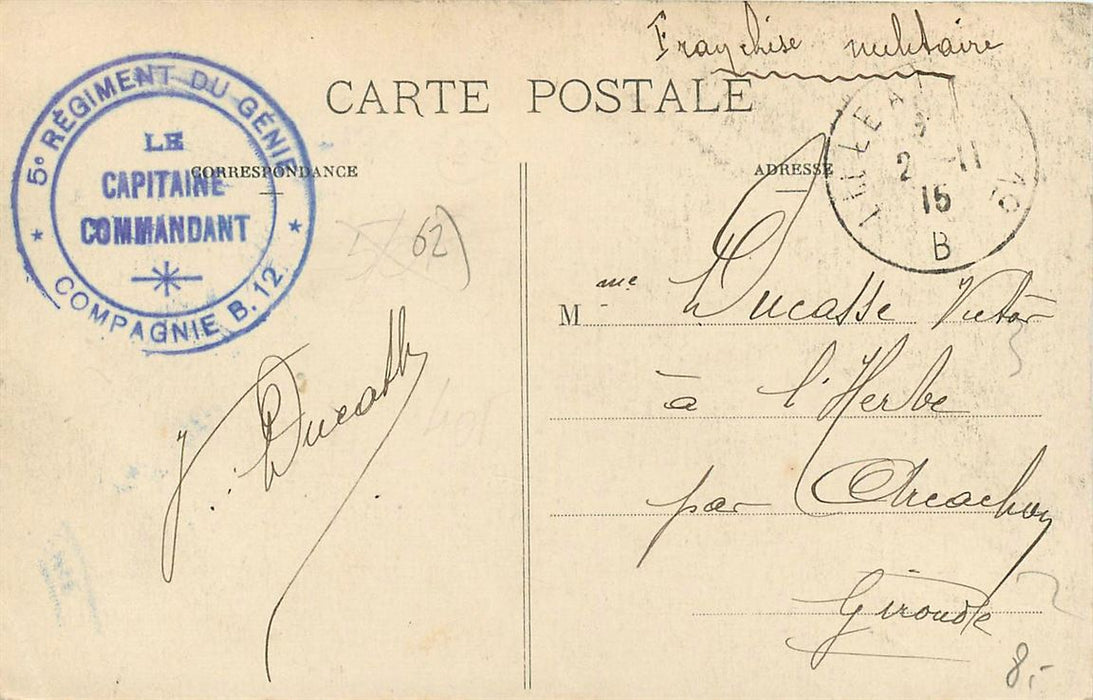 Franchise militaire
CARTE POSTALE
5e RÉGIMENT DU GÉNIE
LE
CAPITAINE
COMMANDANT
* COMPAGNIE B.12. *
CORRESPONDANCE
ADRESSE
2 -11
15
B
62)
Mme Ducasse Victor
à l'Herbe
par Arcachon
Gironde
J. Ducasse
8,-